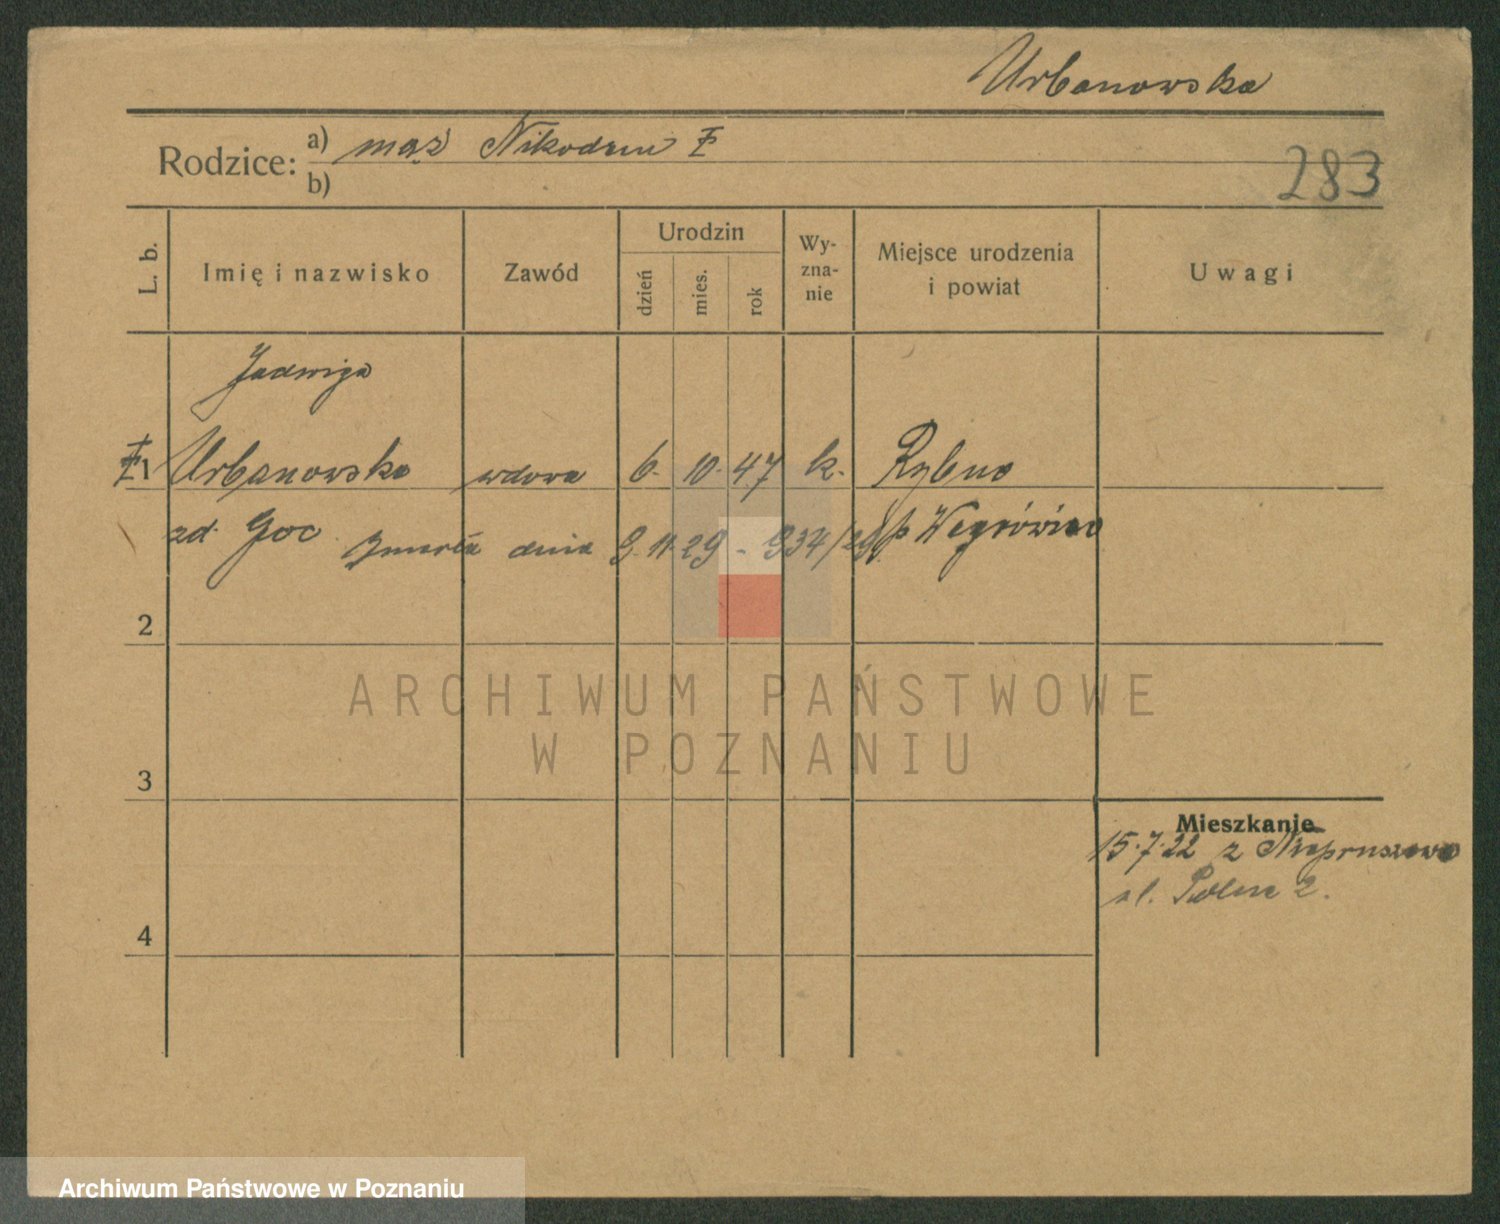 Urbanowska
Rodzice: a) mąż Nikodem ‡
b)
283
L. b. Imię i nazwisko Zawód Urodzin dzień mies. rok Wy-zna-nie Miejsce urodzenia i powiat Uwagi
Jadwiga
‡ 1 Urbanowska wdowa 6. 10. 47 k. Rybno
zd. Goc Zmarła dnia 9. 11. 29 - 934/29 p Węgrówiec
2
ARCHIWUM PAŃSTWOWE
W POZNANIU
3
Mieszkanie
15.7.22 z Niepruszewo
ul. 2.
4
Archiwum Państwowe w Poznaniu